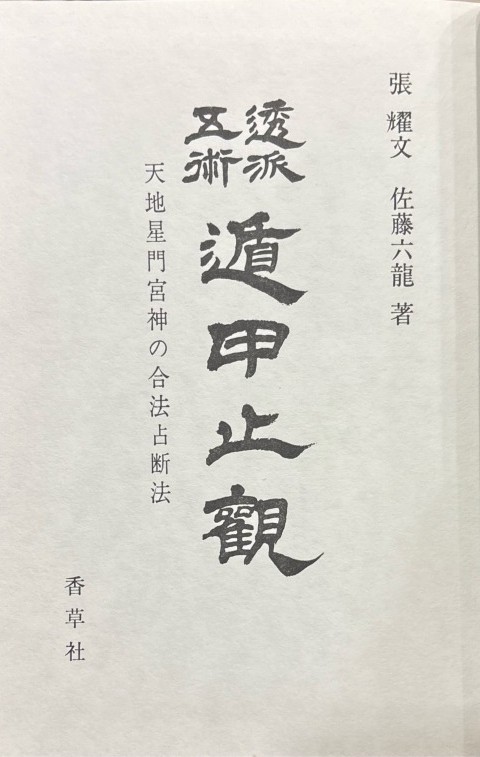 張耀文　佐藤六龍　著
透派
五術
遁甲止觀
天地星門宮神の合法占断法
香草社